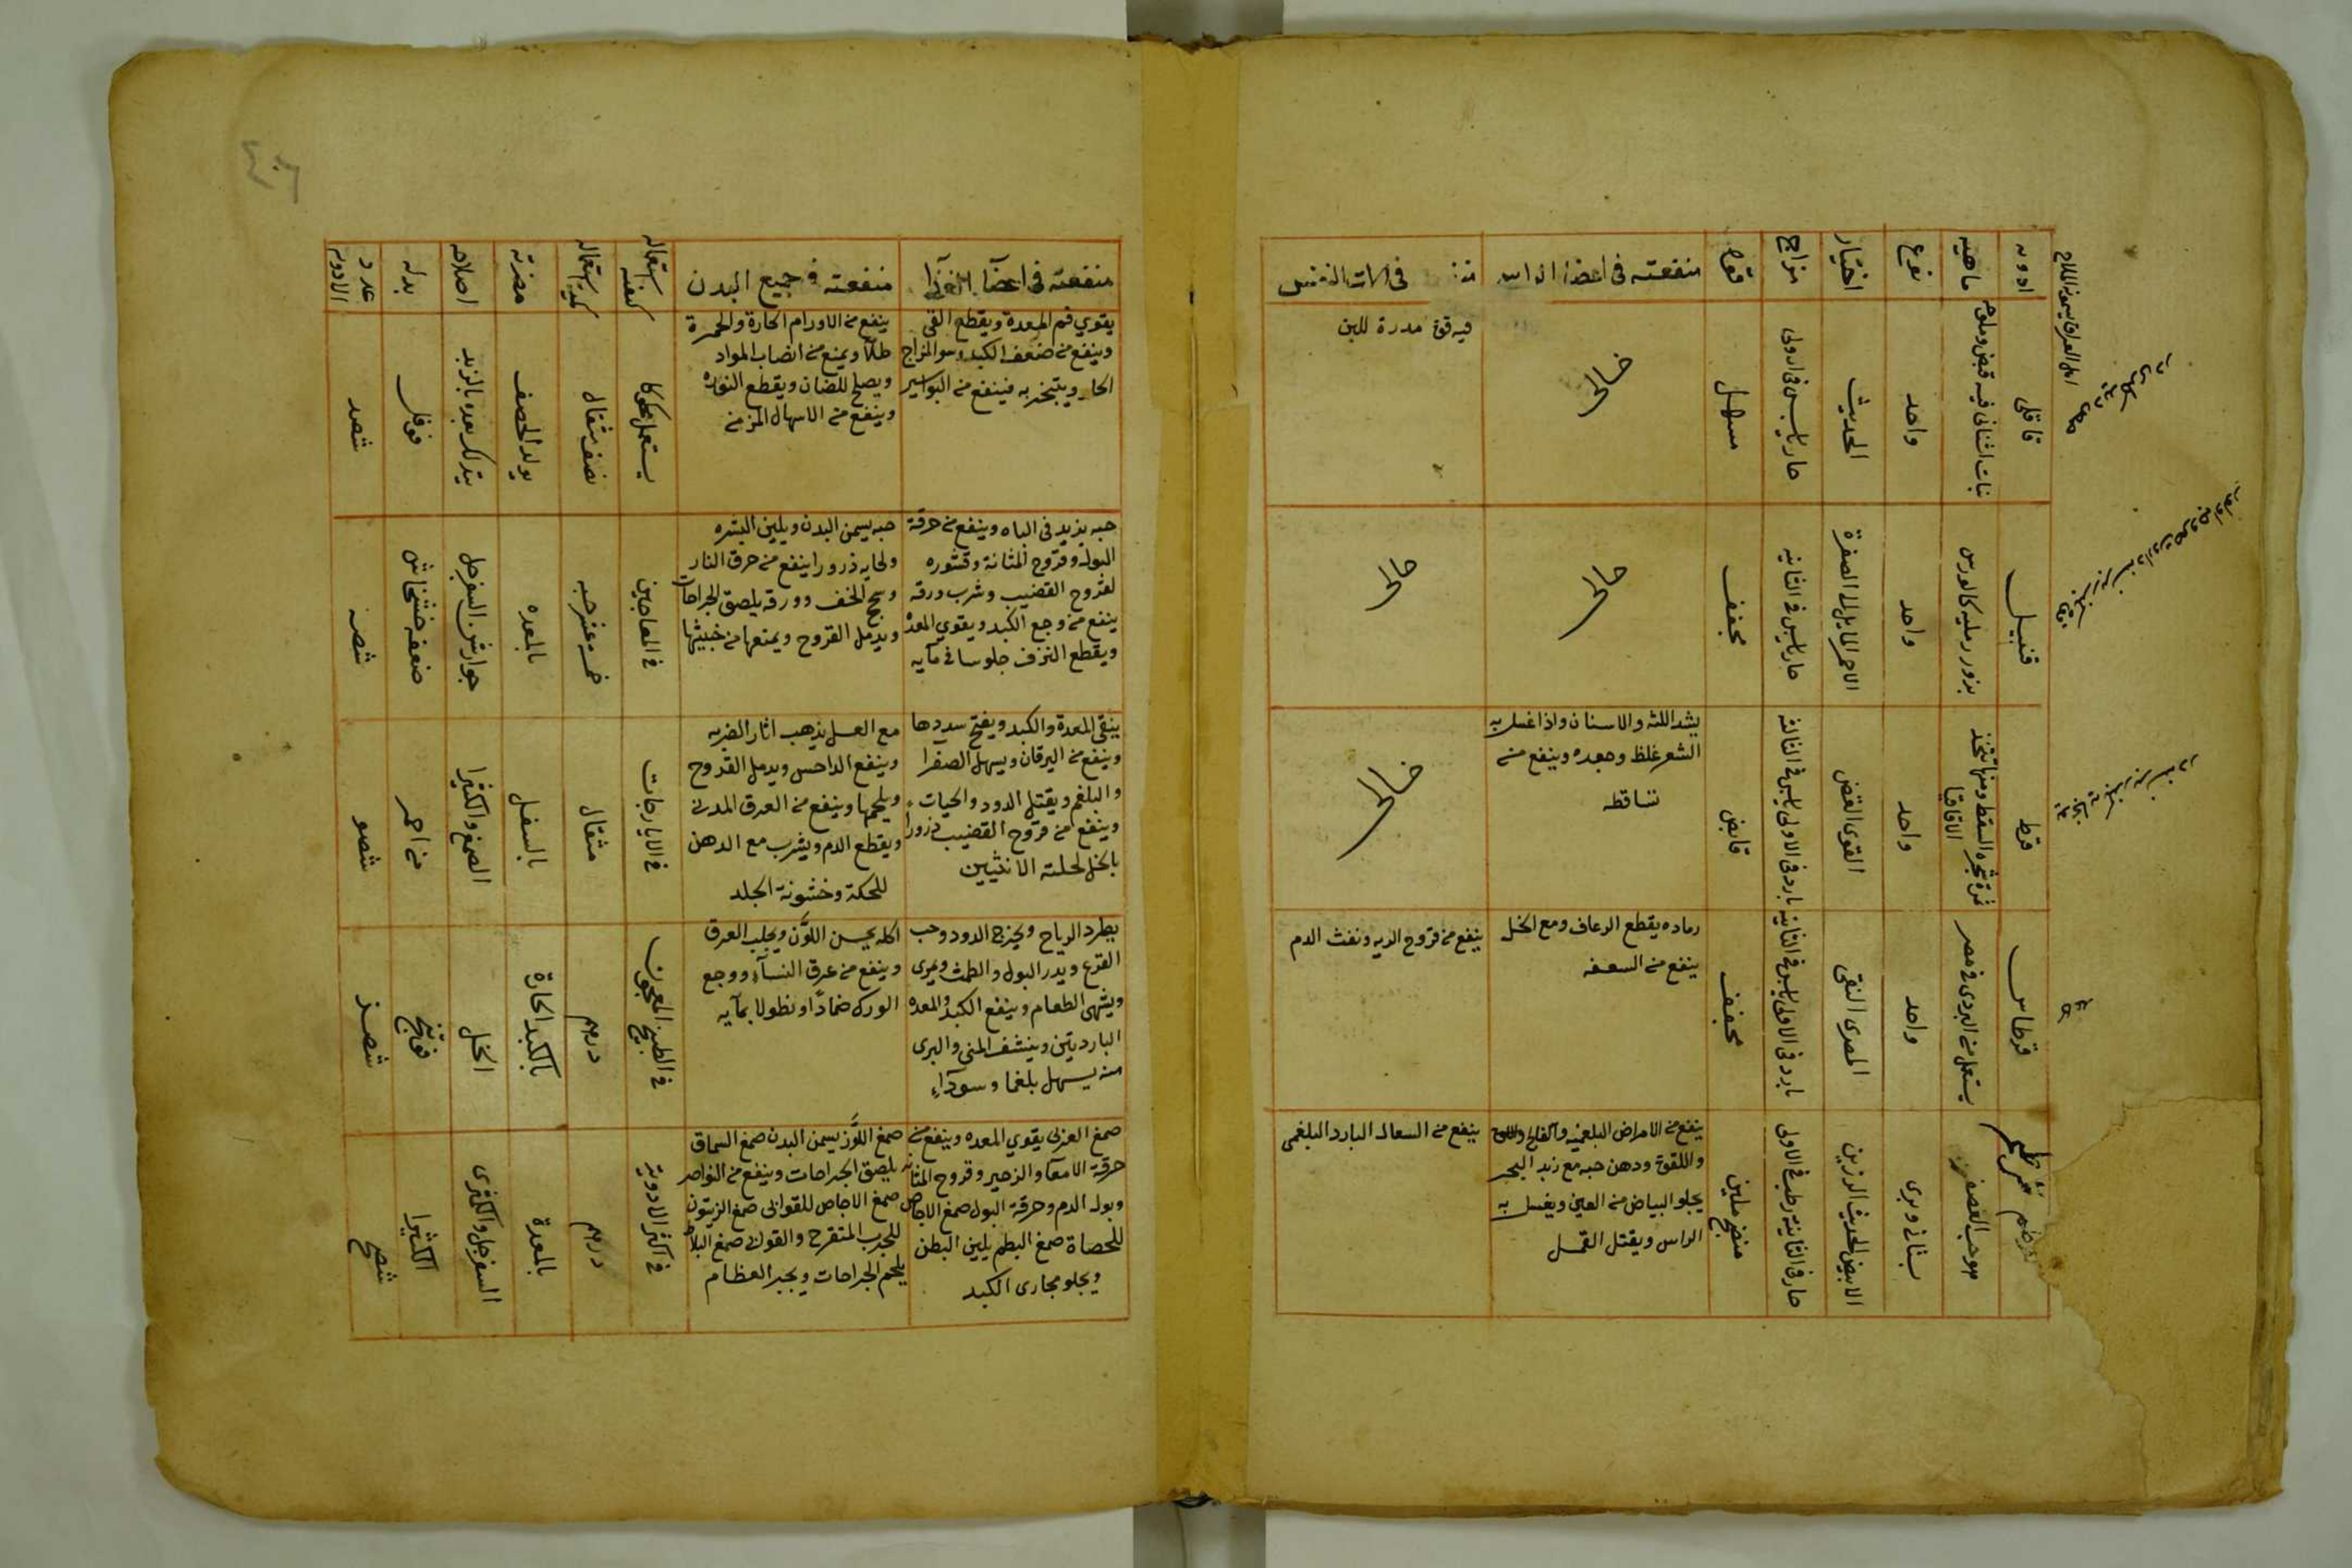 ادویه
ماهیته
نوع
اختیار
مزاج
قوة
منفعته فی اعضا الراس
فی الات التنفس
قاقلی
نبات اشنانی فیه قبض وملوحه
واحد
الحدیث
حار یابس فی الاولی
مسهل
خالی
فیه قوة مدرة للبن
قنبیل
بزور رملیه کالورس
واحد
الاحمر المایل الی الصفرة
حار یابس فی الثانیه
مجفف
خالی
خالی
قرط
ثمرة شجرة السنط ومنها تتخذ
الاقاقیا
واحد
القوی القبض
بارد فی الاولی یابس فی الثالثة
قابض
یشد اللثه والاسنان واذا غسل به
الشعر غلظ وجعده وینفع من
تساقطه
خالی
قرطاس
یستعمل من البردی فی مصر
واحد
المصری النقی
بارد فی الاولی یابس فی الثانیه
مجفف
رماده یقطع الرعاف ومع الخل
ینفع من السعفه
ینفع من قروح الریه ونفث الدم
قرطم
هو حب العصفر
بستانی وبری
الابیض الحدیث الرزین
حار فی الثانیه رطب فی الاولی
منضج ملین
ینفع من الامراض البلغمیه والفالج
واللقوة ودهن حبه مع زبد البحر
یجلو البیاض من العین ویغسل به
الراس ویقتل القمل
ینفع من السعال البارد البلغمی
٤٠٦
منفعته فی اعضآ الغذآ
منفعته فی جمیع البدن
کیفیة استعماله
کمیة استعماله
مضرته
اصلاحه
بدله
عدد
الادویه
یقوی فم المعدة ویقطع القی
وینفع من ضعف الکبد وسو المزاج
الحار ویتبخر به فینفع من البواسیر
ینفع من الاورام الحارة والحمرة
طلآ ویمنع من انصاب المواد
ویصلح للضان ویقطع النوره
وینفع من الاسهال المزمن
یستعمل محکوکا
نصف مثقال
یولد الحصف
یتدلک بعده بالزبد
فوفل
شصد
حبه یزید فی الباه وینفع من حرقة
البول وقروح المثانة وقشوره
لقروح القضیب وشرب ورقه
ینفع من وجع الکبد ویقوی المعدة
ویقطع النزف جلوسا فی مآیه
حبه یسمن البدن ویلین البشره
ولحایه ذرورا ینفع من حرق النار
وسحج الخف وورقه یلصق الجراحات
ویدمل القروح ویمنعها من خبیثها
فی المعاجین
خمسة عشر حبه
بالمعده
جوارش السفرجل
ضعفه خشخاش
شصه
ینقی المعدة والکبد ویفتح سددها
وینفع من الیرقان ویسهل الصفرا
والبلغم ویقتل الدود والحیات
وینفع من قروح القضیب ذرورا
بالخل لحلته الانثیین
مع العسل یذهب اثار الضربه
وینفع الداحس ویدمل القروح
ویلحمها وینفع من العرق المدنی
ویقطع الدم ویشرب مع الدهن
للحکة وخشونة الجلد
فی الایارجات
مثقال
بالسفل
الصمغ والکثیرا
من احمر
شصو
یطرد الریاح ویخرج الدود وحب
القرع ویدر البول والطمث ویمری
ویشهی الطعام وینفع الکبد والمعده
الباردتین وینشف المنی والبری
منه یسهل بلغما وسودآء
اکله یحسن اللون ویجلب العرق
وینفع من عرق النسآء ووجع
الورک ضمادًا او نطولا بمآیه
فی الطبیخ المعجون
درهم
بالکبد الحارة
الخل
فوتنج
شصز
صمغ العربی یقوی المعده وینفع من
حرقة الامعآ والزحیر وقروح المثانه
وبول الدم وحرقة البول صمغ الاجاص
للحصاة صمغ البطم یلین البطن
ویجلو مجاری الکبد
صمغ اللوز یسمن البدن صمغ السماق
یلصق الجراحات وینفع من النواصر
صمغ الاجاص للقوابی صمغ الزیتون
للجرب المتقرح والقوابی صمغ البلاط
یلحم الجراحات ویجبر العظام
فی اکثر الادویة
درهم
بالمعدة
السفرجل والکمثری
الکثیرا
شصح